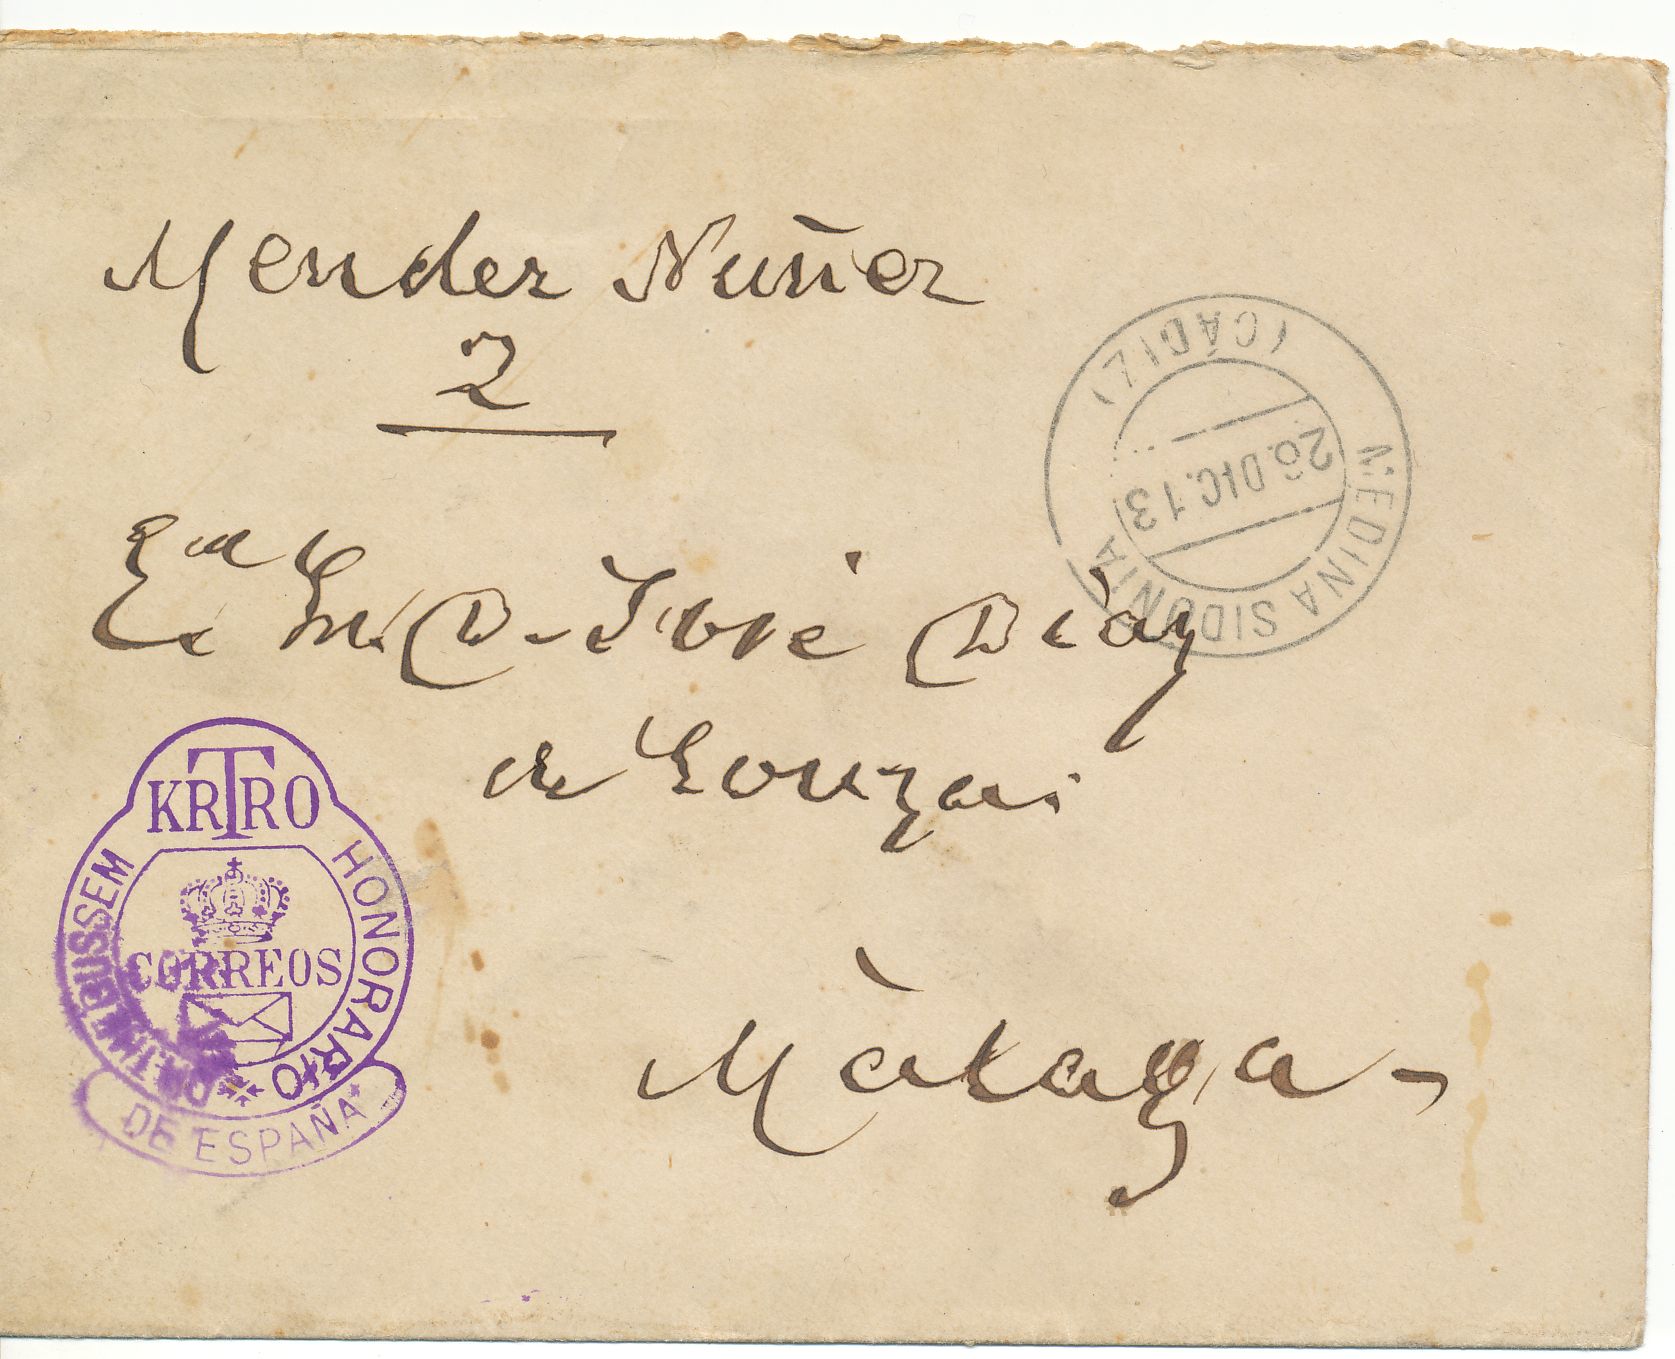 Mendez Nuñez
2
Exmo Sr. D. José Diaz
de
Málaga
MEDINA SIDONIA
(CÁDIZ)
26.DIC.13
KRTRO
THEBUSSEM HONORARIO
CORREOS
DE ESPAÑA